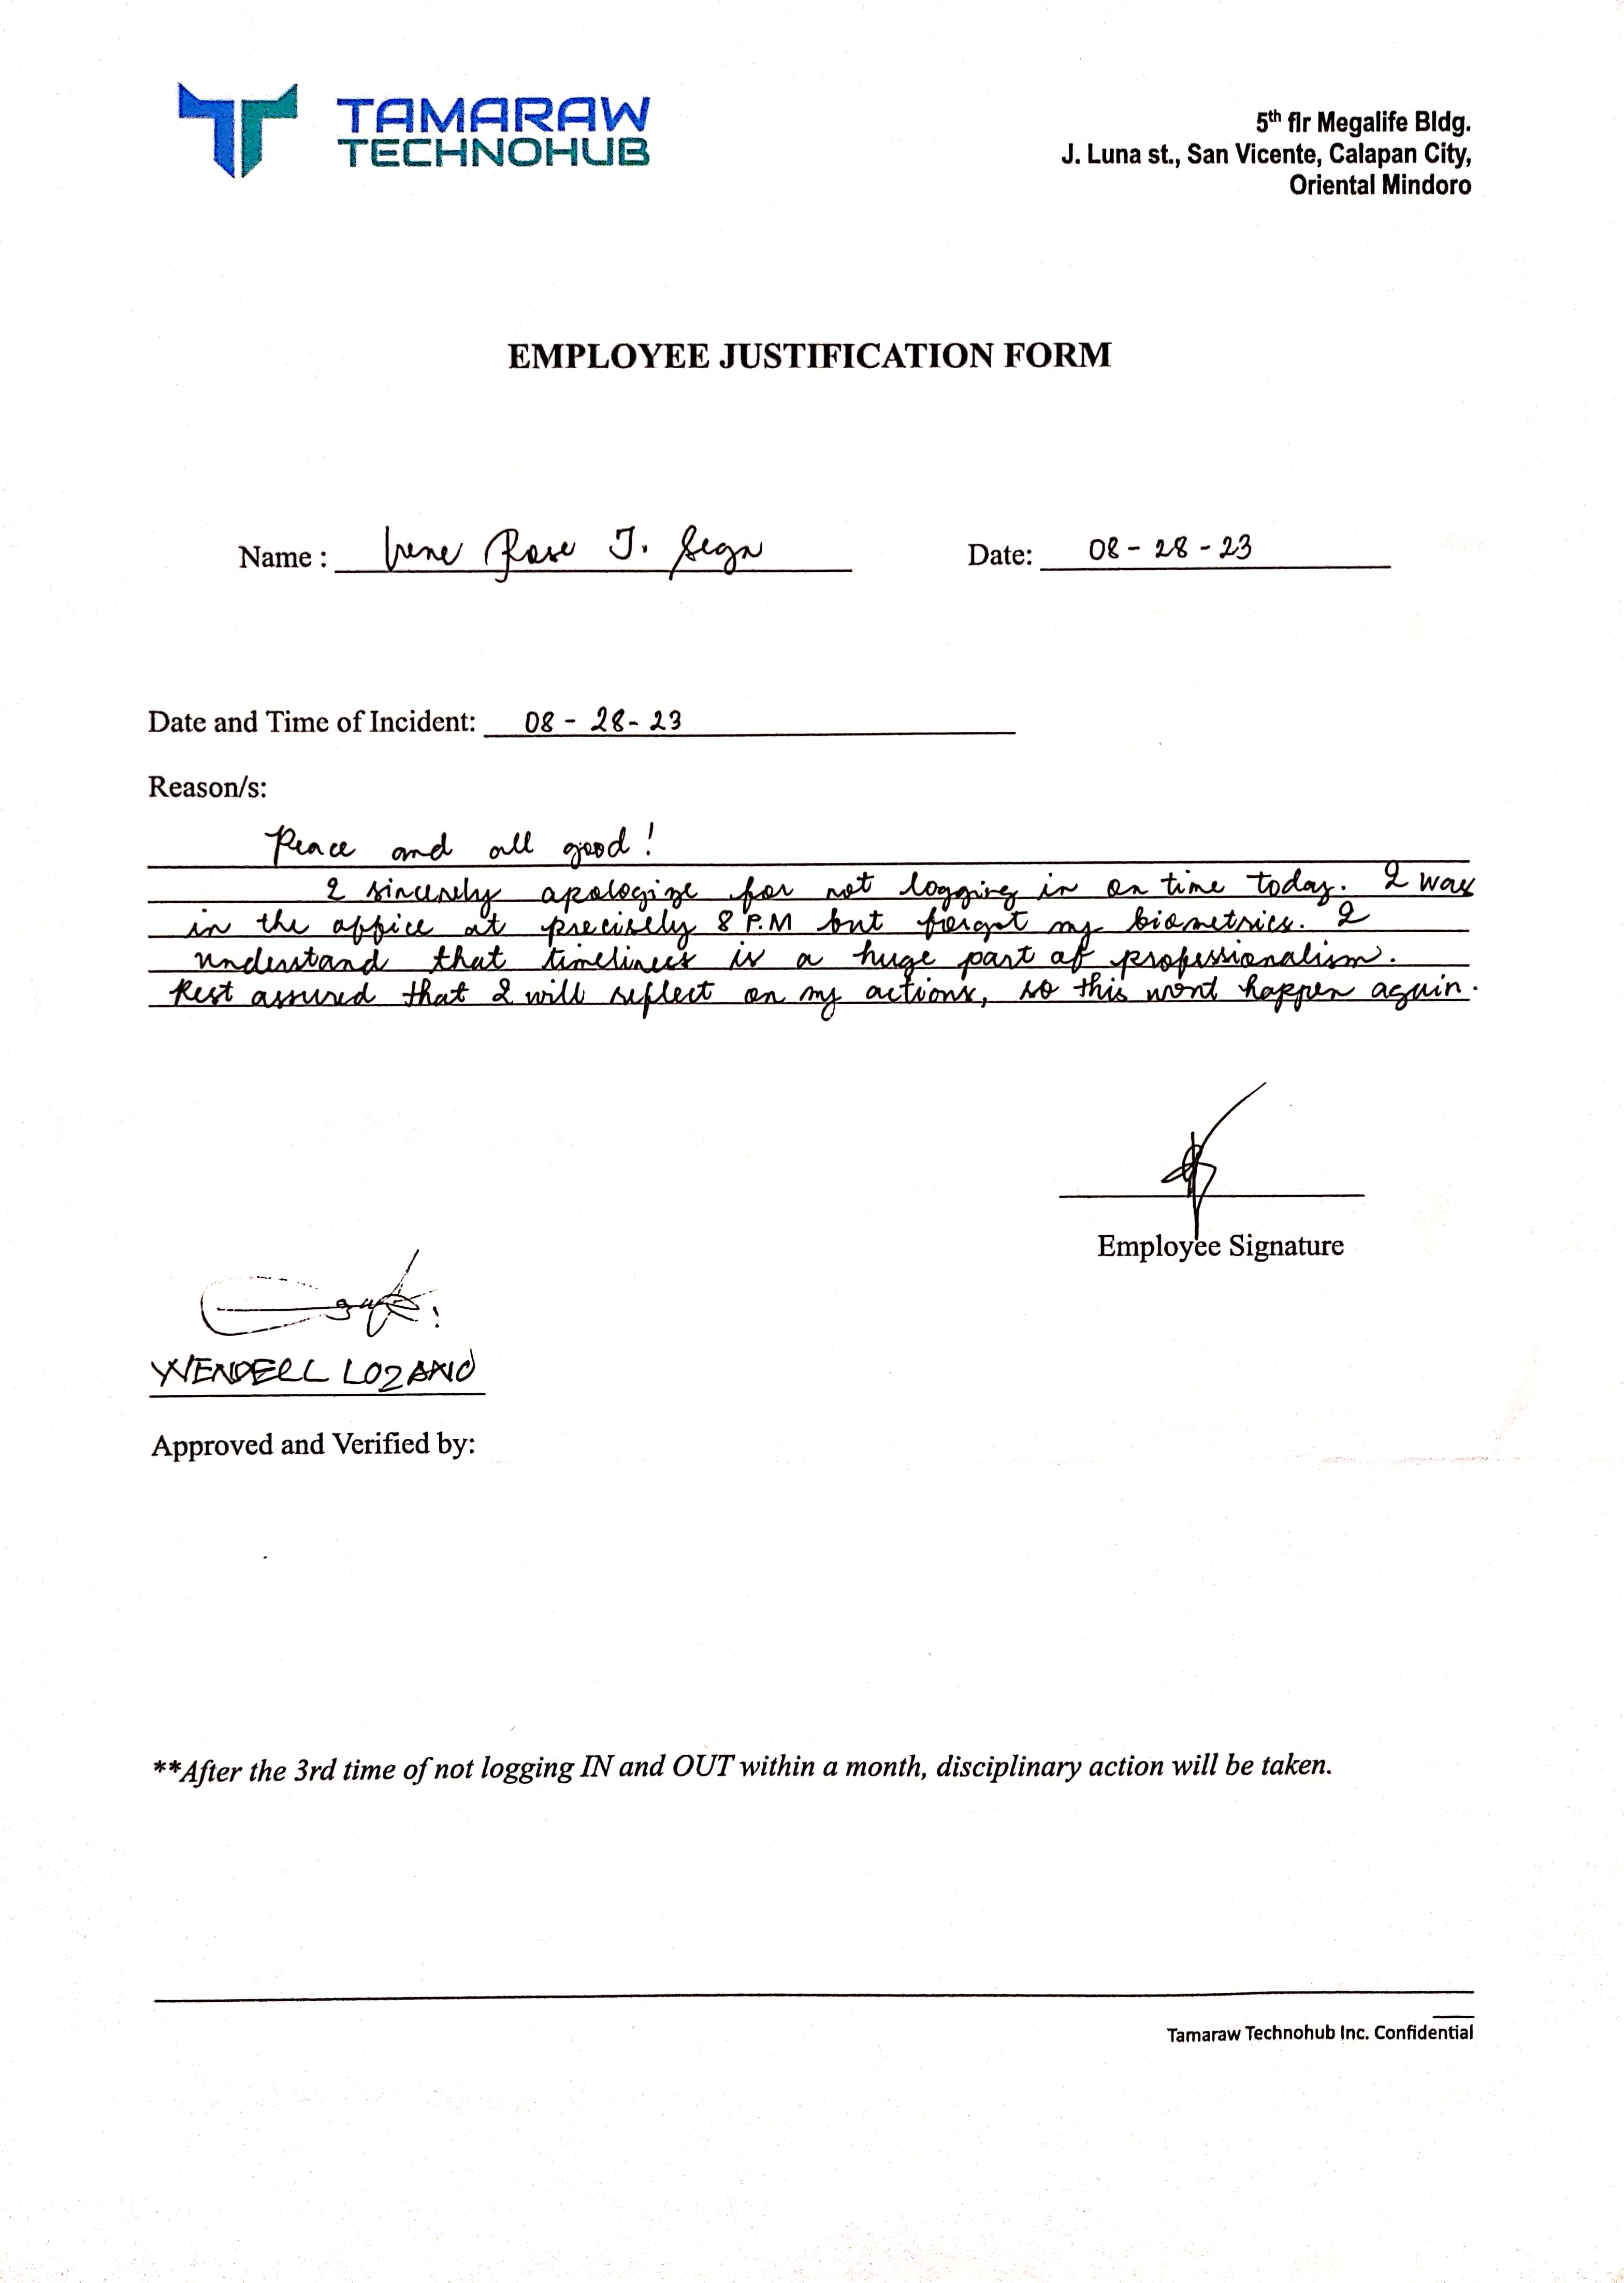 TAMARAW
TECHNOHUB
5th flr Megalife Bldg.
J. Luna st., San Vicente, Calapan City,
Oriental Mindoro
EMPLOYEE JUSTIFICATION FORM
Name : Irene Rose J. Date: 08 - 28 - 23
Date and Time of Incident: 08 - 28 - 23
Reason/s:
Peace and all good!
I sincerely apologize for not logging in on time today. I was
in the office at precisely 8 P.M but forgot my biometrics. I
understand that timeliness is a huge part of professionalism.
Rest assured that I will reflect on my actions, so this wont happen again.
Employee Signature
WENDELL LOZANO
Approved and Verified by:
**After the 3rd time of not logging IN and OUT within a month, disciplinary action will be taken.
Tamaraw Technohub Inc. Confidential